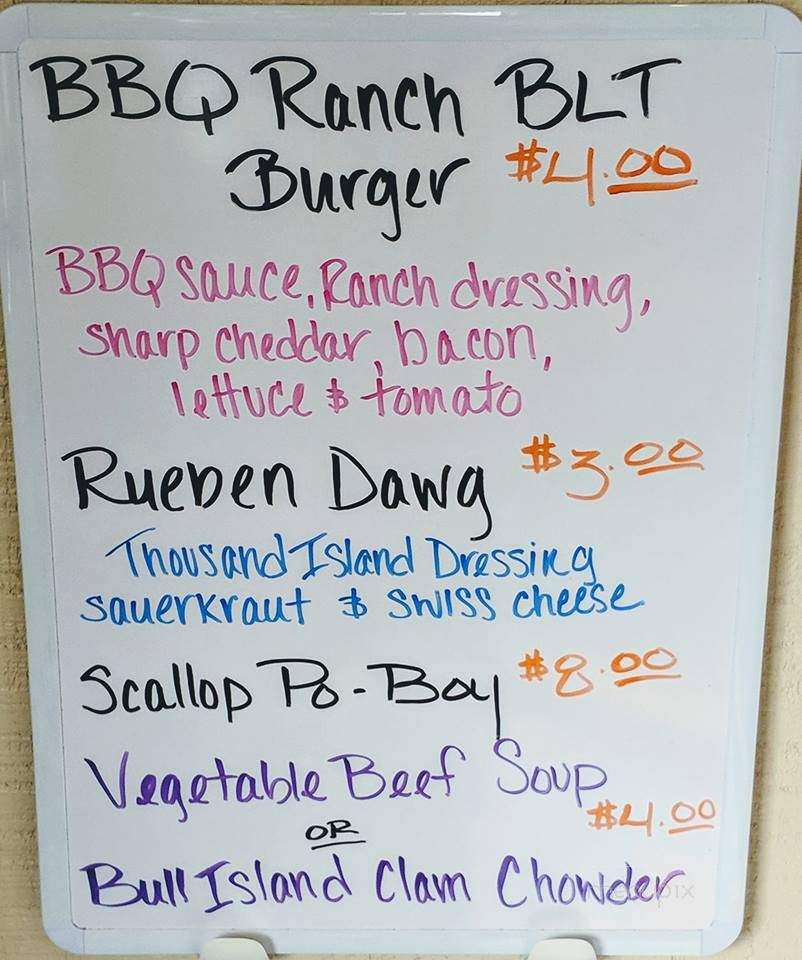 BBQ Ranch BLT
Burger $4.00
BBQ sauce, Ranch dressing,
sharp cheddar, bacon,
lettuce & tomato
Rueben Dawg $3.00
Thousand Island Dressing
sauerkraut & swiss cheese
Scallop Po-Boy $8.00
Vegetable Beef Soup
$4.00
OR
Bull Island Clam Chowder